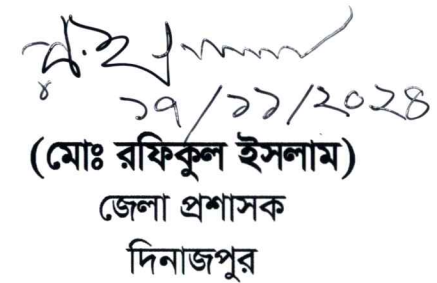 ১৭/১১/২০২৪
(মোঃ রফিকুল ইসলাম)
জেলা প্রশাসক
দিনাজপুর